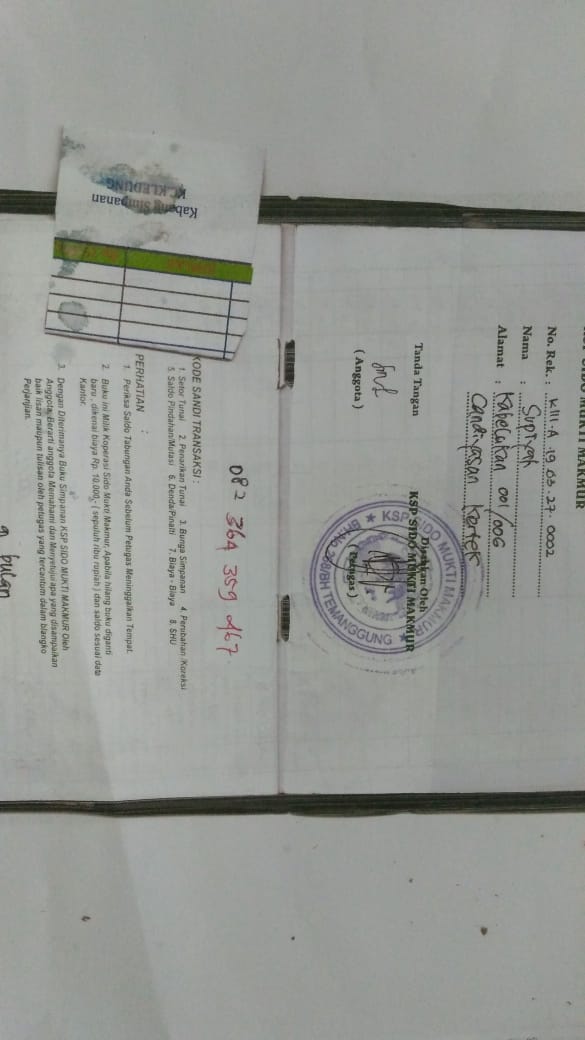 KSP SIDO MUKTI MAKMUR
No. Rek. : K III.A 19.03.27.0002
Nama : Supriyah
Alamat : Kabelukan 001/006
Candiyasan Kertek
Tanda Tangan
( Anggota )
Disahkan Oleh
KSP SIDO MUKTI MAKMUR
( Petugas )
KSP SIDO MUKTI MAKMUR
TEMANGGUNG
082 364 359 467
KODE SANDI TRANSAKSI :
1. Setor Tunai 2. Penarikan Tunai 3. Bunga Simpanan 4. Perubahan /Koreksi
5. Saldo Pindahan/Mutasi 6. Denda/Pinalti 7. Biaya - Biaya 8. SHU
PERHATIAN :
1. Periksa Saldo Tabungan Anda Sebelum Petugas Meninggalkan Tempat.
2. Buku ini Milik Koperasi Sido Mukti Makmur, Apabila hilang buku diganti
baru , dikenai biaya Rp. 10.000,- ( sepuluh ribu rupiah ) dan saldo sesuai data
Kantor.
3. Dengan Diterimanya Buku Simpanan KSP SIDO MUKTI MAKMUR Oleh
Anggota, Berarti anggota Memahami dan Menyetujui apa yang disampaikan
baik lisan maupun tulisan oleh petugas yang tercantum dalam blangko
Perjanjian.
bulan
Kabang Simpanan
KC. KLEDUNG